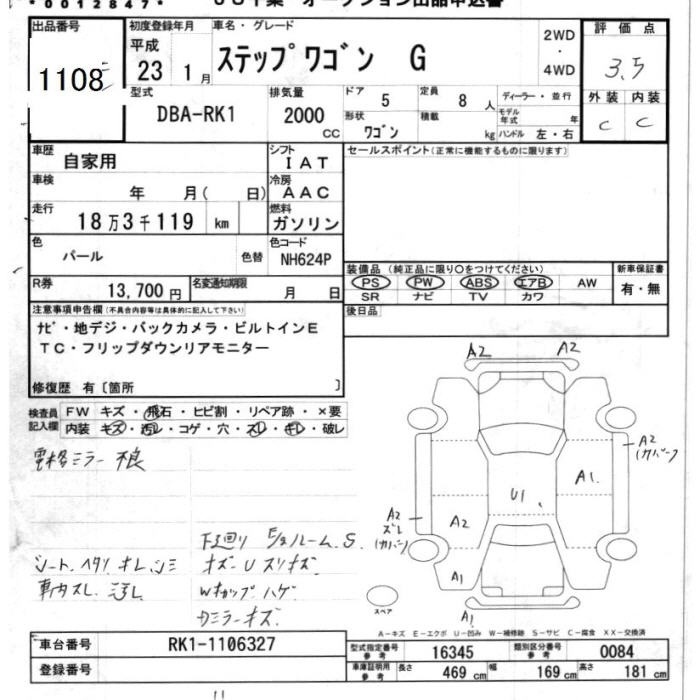 * 0 0 1 2 8 4 7 *
出品番号
1108
初度登録年月
平成
23 1月
車名・グレード
ステップワゴン G
2WD
・
4WD
評価点
3.5
外装 内装
C C
型式
DBA-RK1
排気量
2000
CC
ドア
5
定員
8 人
形状
ワゴン
積載
kg
ディーラー・並行
モデル年式 年
ハンドル 左・右
車歴
自家用
シフト
IAT
車検
年 月( 日)
冷房
AAC
走行
18万3千119 km
燃料
ガソリン
色
パール
色替
色コード
NH624P
R券
13,700円
名変通知期限
月 日
セールスポイント(正常に機能するものに限ります)
装備品 (純正品に限り○をつけてください)
PS PW ABS エアB AW
SR ナビ TV カワ
新車保証書
有・無
後日品
注意事項申告欄(不具合内容等は具体的に記入して下さい)
ナビ・地デジ・バックカメラ・ビルトインE
TC・フリップダウンリアモニター
修復歴 有〔箇所 〕
検査員
記入欄
FW キズ・飛石・ヒビ割・リペア跡・×要
内装 キズ・汚レ・コゲ・穴・スレ・キレ・破レ
電格ミラー不良
シート ヘタリ キレ シミ
車内スレ 汚レ
下廻り
S
キズ U スリキズ
Wキャップ ハゲ
ミラーキズ
A2
A2
A2
(カバー)
A1
U1
A2
A2
スレ
(カバー)
A1
A1
スペア
A-キズ E-エクボ U-凹み W-補修跡 S-サビ C-腐食 XX-交換済
車台番号
RK1-1106327
登録番号
型式指定番号
参考
16345
類別区分番号
参考
0084
車庫証明用
参考
長さ 469 cm 幅 169 cm 高さ 181 cm